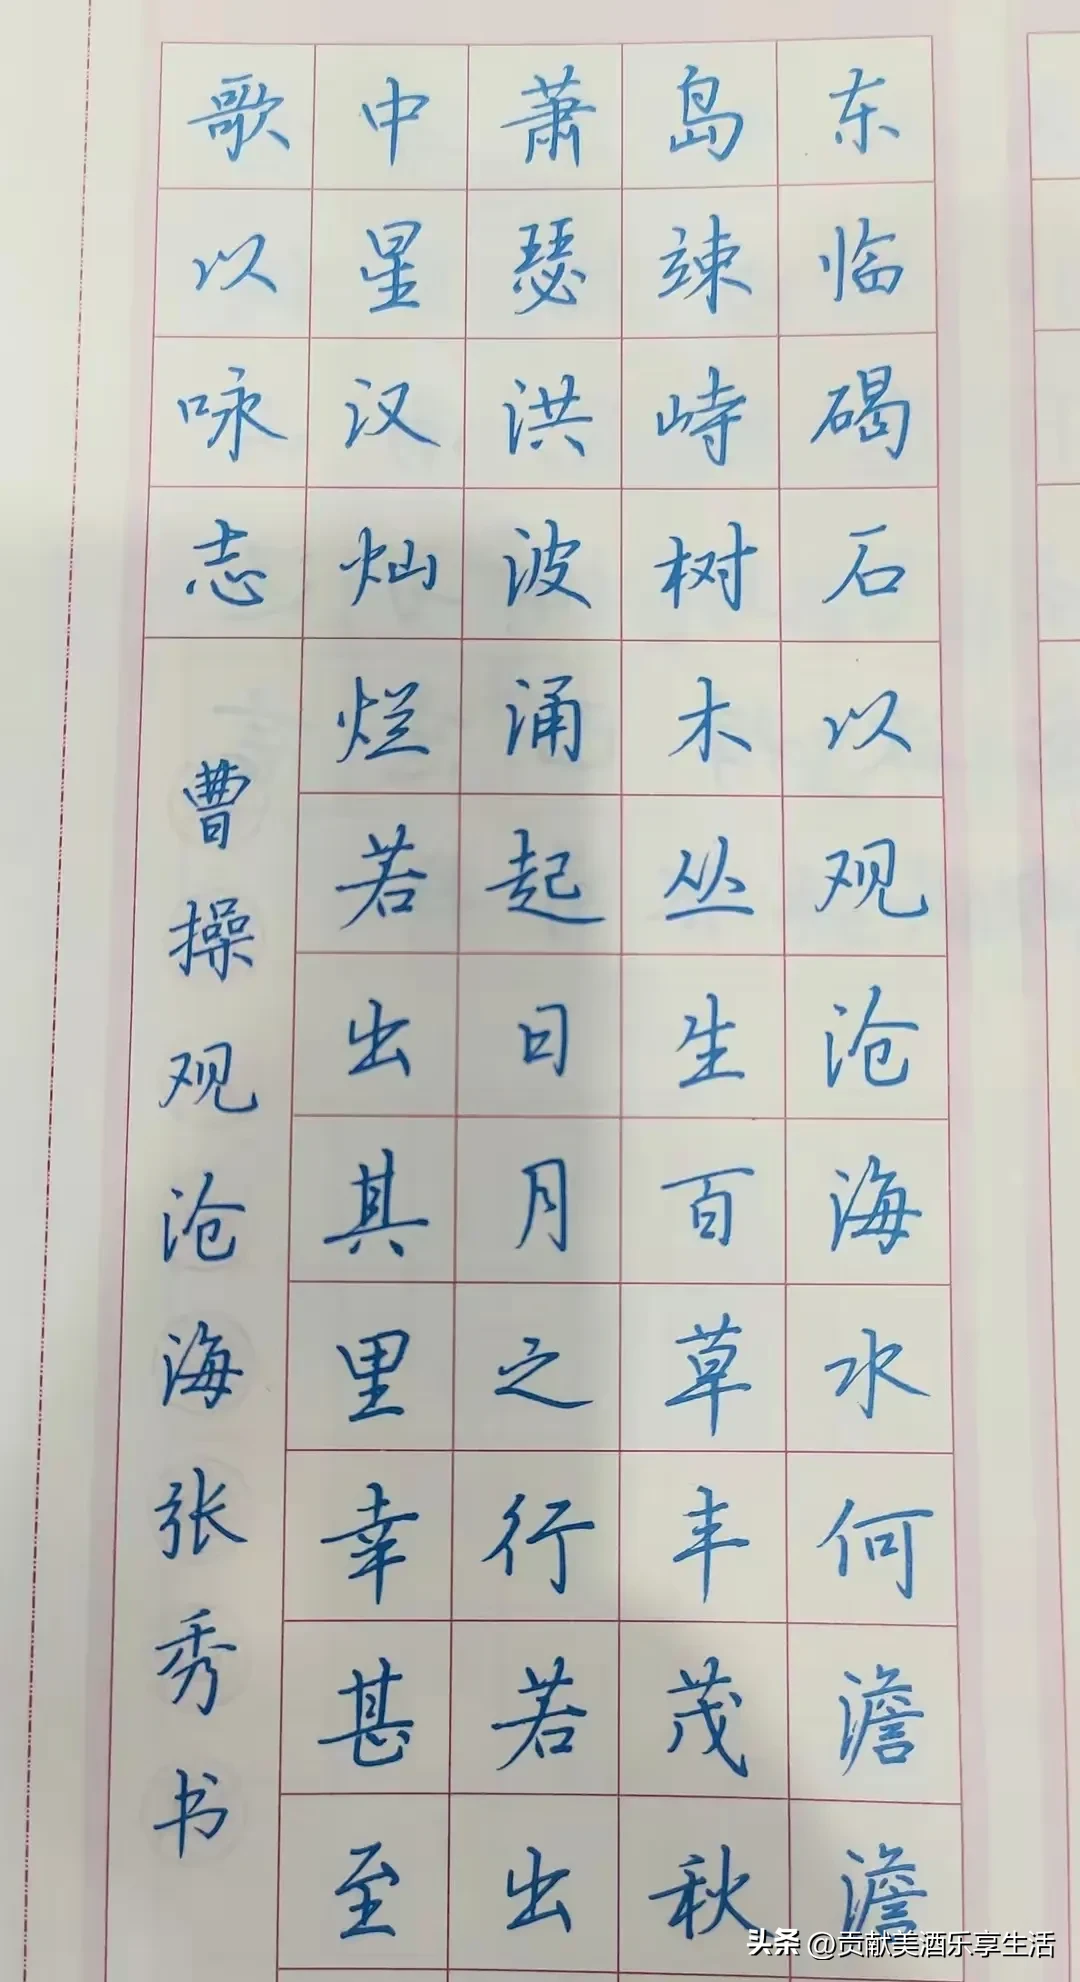 东临碣石以观沧海水何澹澹
岛竦峙树木丛生百草丰茂秋
萧瑟洪波涌起日月之行若出
中星汉灿烂若出其里幸甚至
歌以咏志
曹操观沧海张秀书
头条 @贡献美酒乐享生活